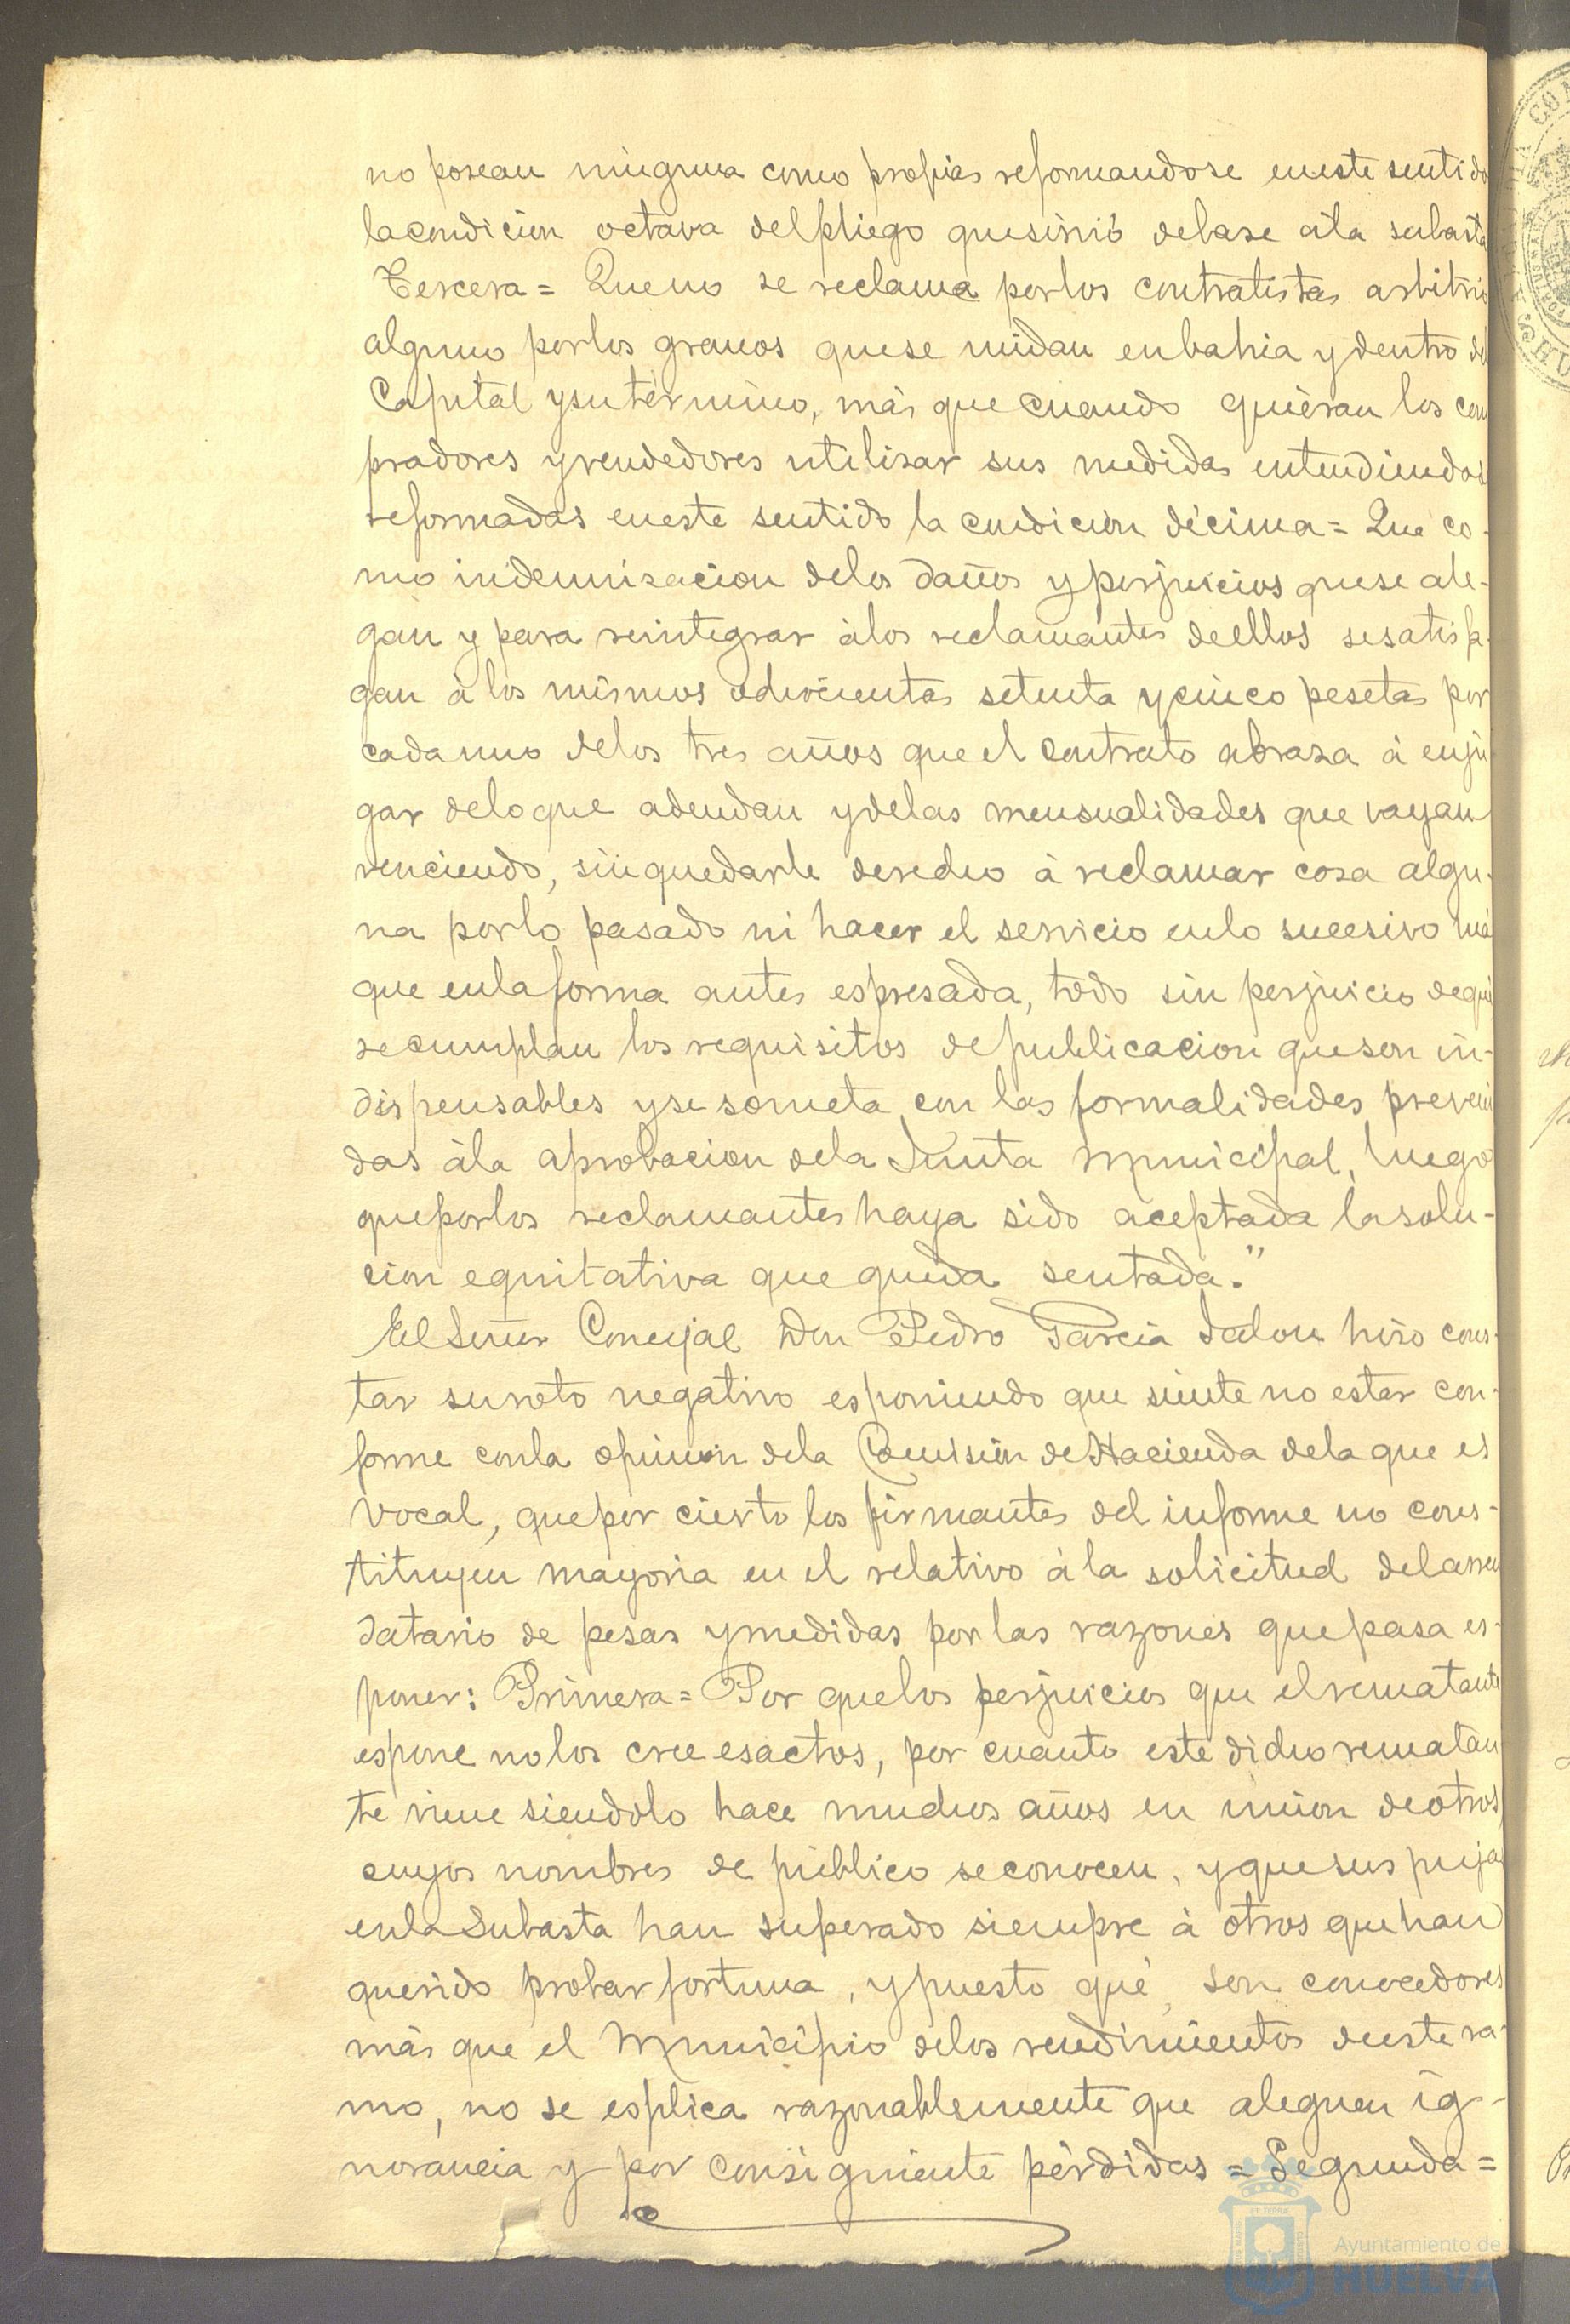 no posean ninguna como propias reformandose en este sentido
la condicion octava del pliego que sirvió de base á la subasta
Tercera = Que no se reclama por los contratistas arbitrio
alguno por los granos que se midan en bahia y dentro de
Capital y su término, más que cuando quieran los com
pradores y vendedores utilisar sus medidas entendiendose
reformadas en este sentido la condicion décima = Que co-
mo indemnisacion de los daños y perjuicios que se ale-
gan y para reintegrar á los reclamantes de ellos se satisfa-
gan á los mismos ochocientas setenta y cinco pesetas por
cada uno de los tres años que el contrato abraza á enju
gar de lo que adeudan y de las mensualidades que vayan
venciendo, sin quedarle derecho á reclamar cosa algu-
na por lo pasado ni hacer el servicio en lo sucesivo más
que en la forma antes espresada, todo sin perjuicio de que
se cumplan los requisitos de publicacion que son in-
dispensables y se someta con las formalidades preveni
das á la aprobacion de la Junta Municipal, luego
que por los reclamantes haya sido aceptada la solu-
cion equitativa que queda sentada."
El Señor Concejal Don Pedro Garcia Jalon hiso cons-
tar su voto negativo esponiendo que siente no estar con-
forme con la opinion de la Comision de Hacienda de la que es
vocal, que por cierto los firmantes del informe no cons-
tituyen mayoria en el relativo á la solicitud del arren
datario de pesas y medidas por las razones que pasa es-
poner: Primera = Por que los perjuicios que el rematante
espone no los cree esactos, por cuanto este dicho rematan
te viene siendolo hace muchos años en union de otros
cuyos nombres de público se conocen, y que sus pujas
en la Subasta han superado siempre á otros que han
querido probar fortuna, y puesto que son conocedores
más que el Municipio de los rendimientos de este ra-
mo, no se esplica razonablemente que aleguen ig-
norancia y por consiguiente pérdidas = Segunda =
Ayuntamiento de
HUELVA